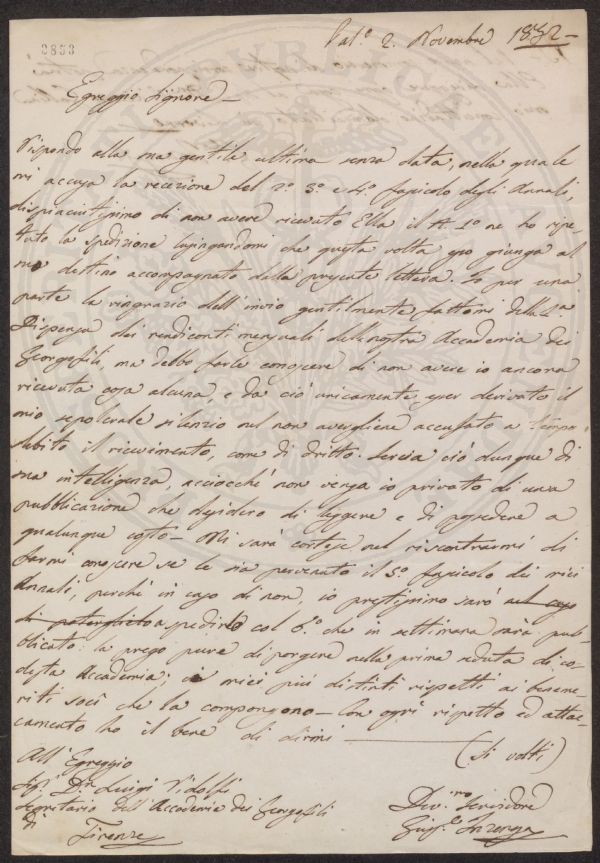 3833
Pal.o 2. Novembre 1852 —
Egreggio Signore —
Rispondo alla sua gentile ultima senza data, nella quale
mi accusa la recezione del 2.o 3.o e 4.o fascicolo degli Annali,
dispiacentissimo di non avere ricevuto Ella il N. 1.o ne ho ripe-
tuto la spedizione lusingandomi che questa volta giunga al
suo destino accompagnato dalla presente lettera. Io per una
parte la ringrazio dell'invio gentilmente fattomi della
Dispensa dei rendiconti mensuali della nostra Accademia dei
Georgofili, ma debbo farle conoscere di non avere io ancora
ricevuta cosa alcuna, e da ciò unicamente esser derivato il
mio sepolcrale silenzio nel non avergliene accusato a tempo
subito il ricevimento, come di dritto. Serva ciò dunque di
sua intelligenza, acciocché non venga io privato di una
pubblicazione che desidero di leggere e di possedere a
qualunque costo — Mi sarà cortese nel riscontrarmi di
farmi conoscere se le sia pervenuto il 5.o fascicolo dei miei
Annali, perché in caso di non, io prestissimo sarò nel caso
di spedirlo col 6.o che in settimana sarà pub-
blicato: la prego pure di porgere nella prima seduta di co-
desta Accademia; i miei più distinti rispetti ai beneme-
riti socî che la compongono — Con ogni rispetto ed attac-
camento ho il bene di dirmi —
(Si volti)
All'Egreggio
Sig.r D.r Luigi Ridolfi
Segretario dell'Accademia dei Georgofili
di
Firenze
Div.mo Servidore
Gius.e Inzenga